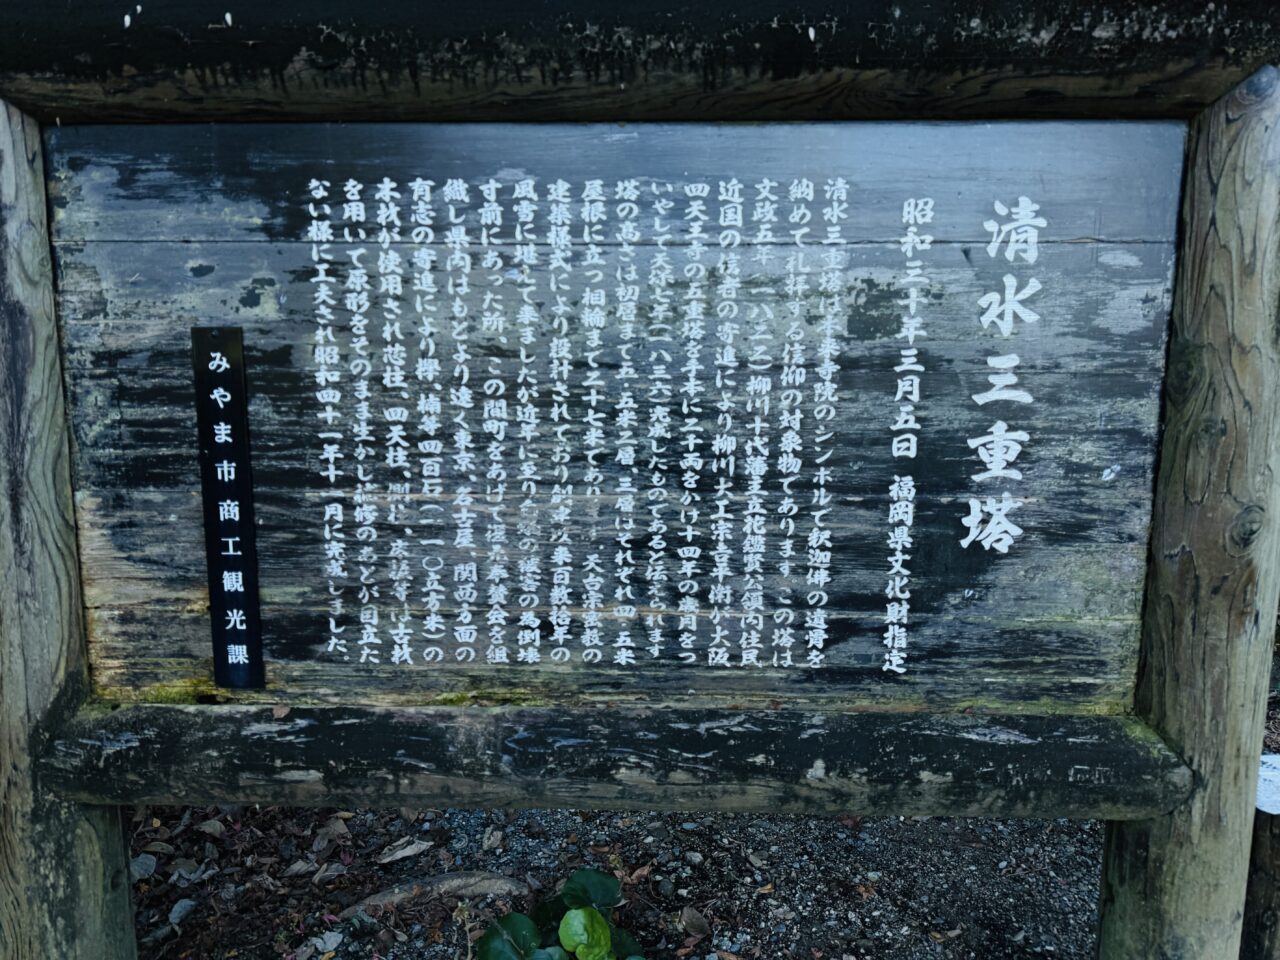 清水三重塔
昭和三十年三月五日 福岡県文化財指定
清水三重塔は本来寺院のシンボルで釈迦佛の遺骨を
納めて礼拝する信仰の対象物であります この塔は
文政五年(一八二二)柳川十代藩主立花鑑賢公領内住民
近国の信者の寄進により柳川大工宗吉平衛が大阪
四天王寺の五重塔を手本に二千両をかけ十四年の歳月をつ
いやして天保七年(一八三六完成したものであると伝えられます
塔の高さは初層まで五・五米二層、三層はそれぞれ四・五米
屋根に立つ相輪まで二十七米であり 天台宗密教の
建築様式により設計されており創建以来百数拾年の
風雪に堪えて来ましたが近年に至り の為倒壊
寸前にあった所、この間町をあげて 奉賛会を組
織し県内はもとより遠く東京、名古屋、関西方面の
有志の寄進により欅、楠等四百石(一一〇立方米)の
木材が使用され芯柱、四天柱、側柱、 等は古材
を用いて原形をそのまま生かし補修のあとが目立た
ない様に工夫され昭和四十一年十一月に完成しました。
みやま市商工観光課